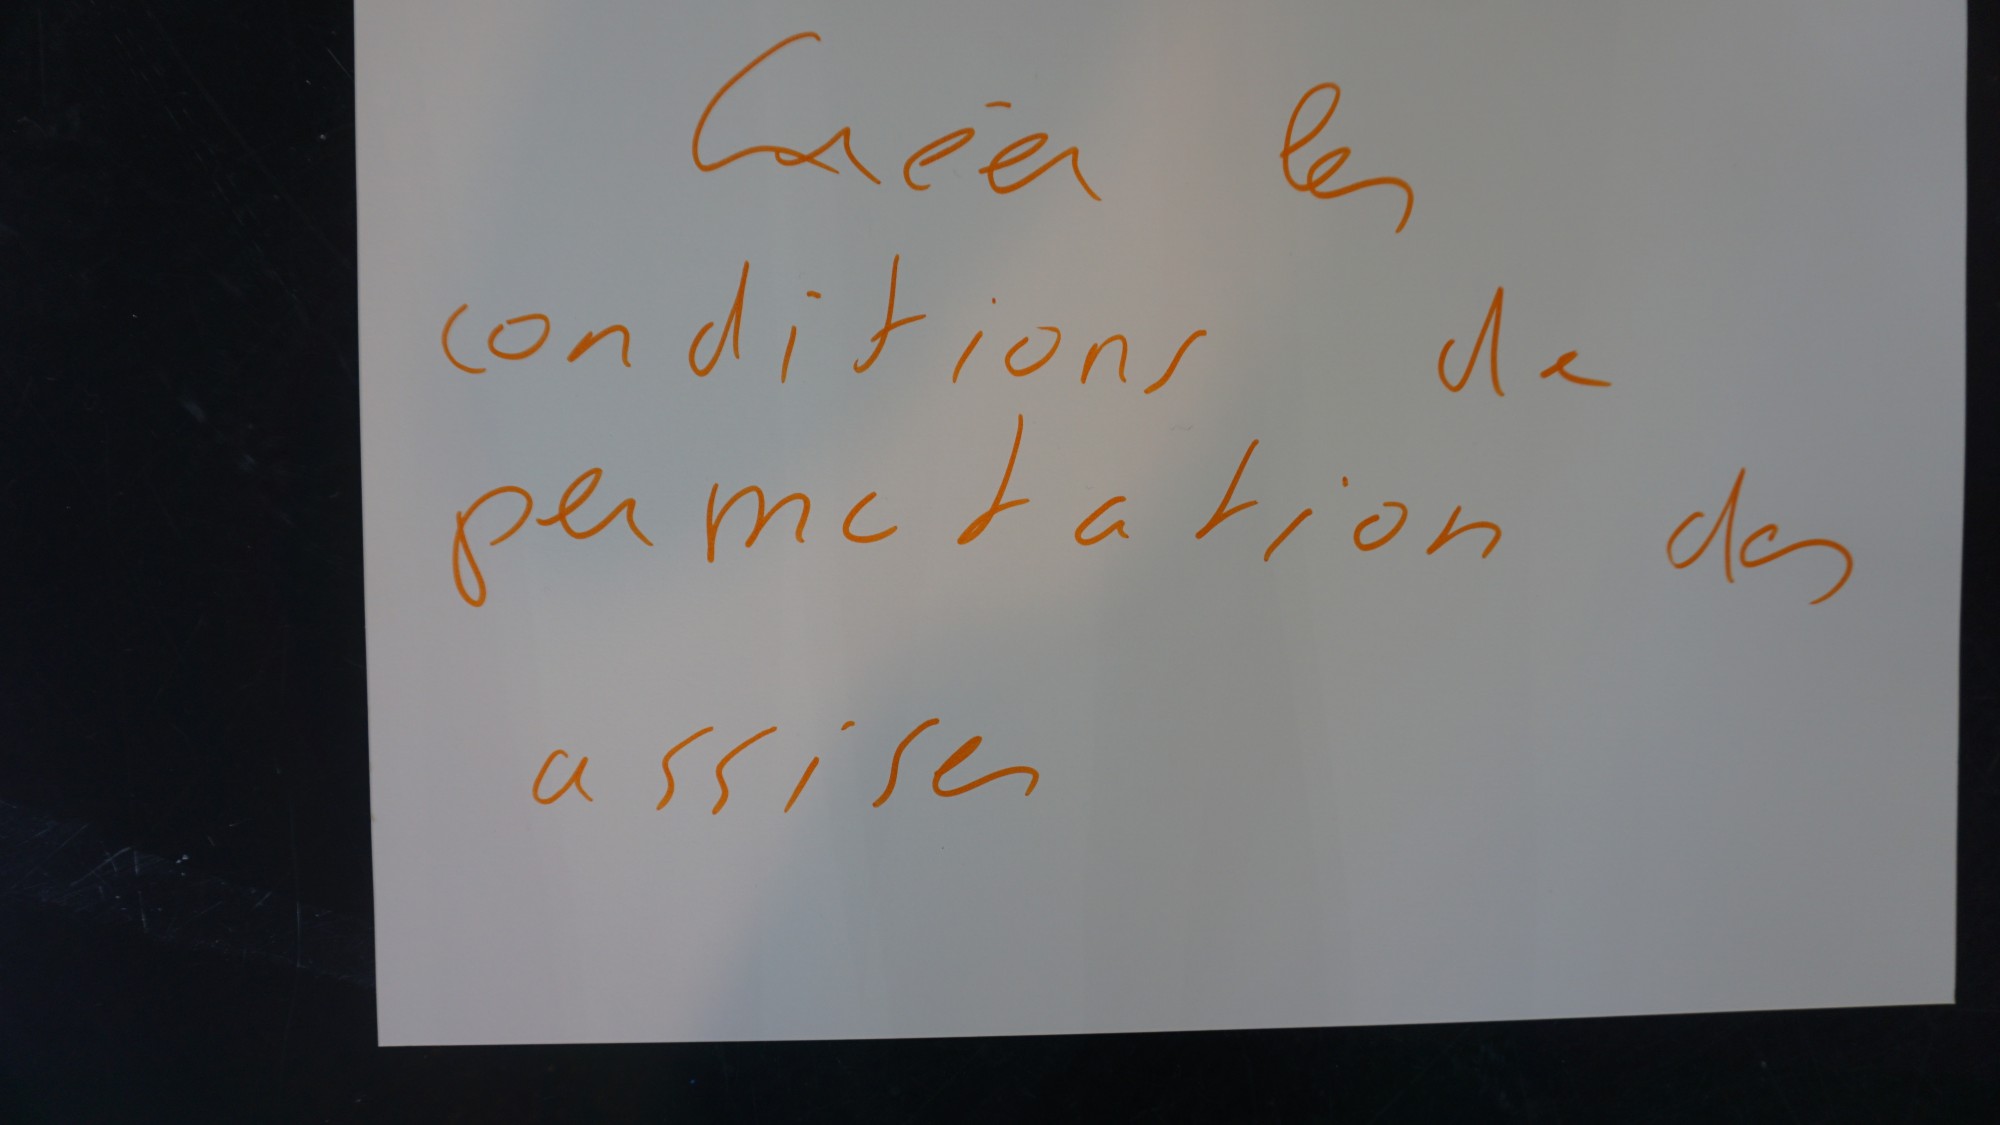 Créer les
conditions de
permutation des
assises